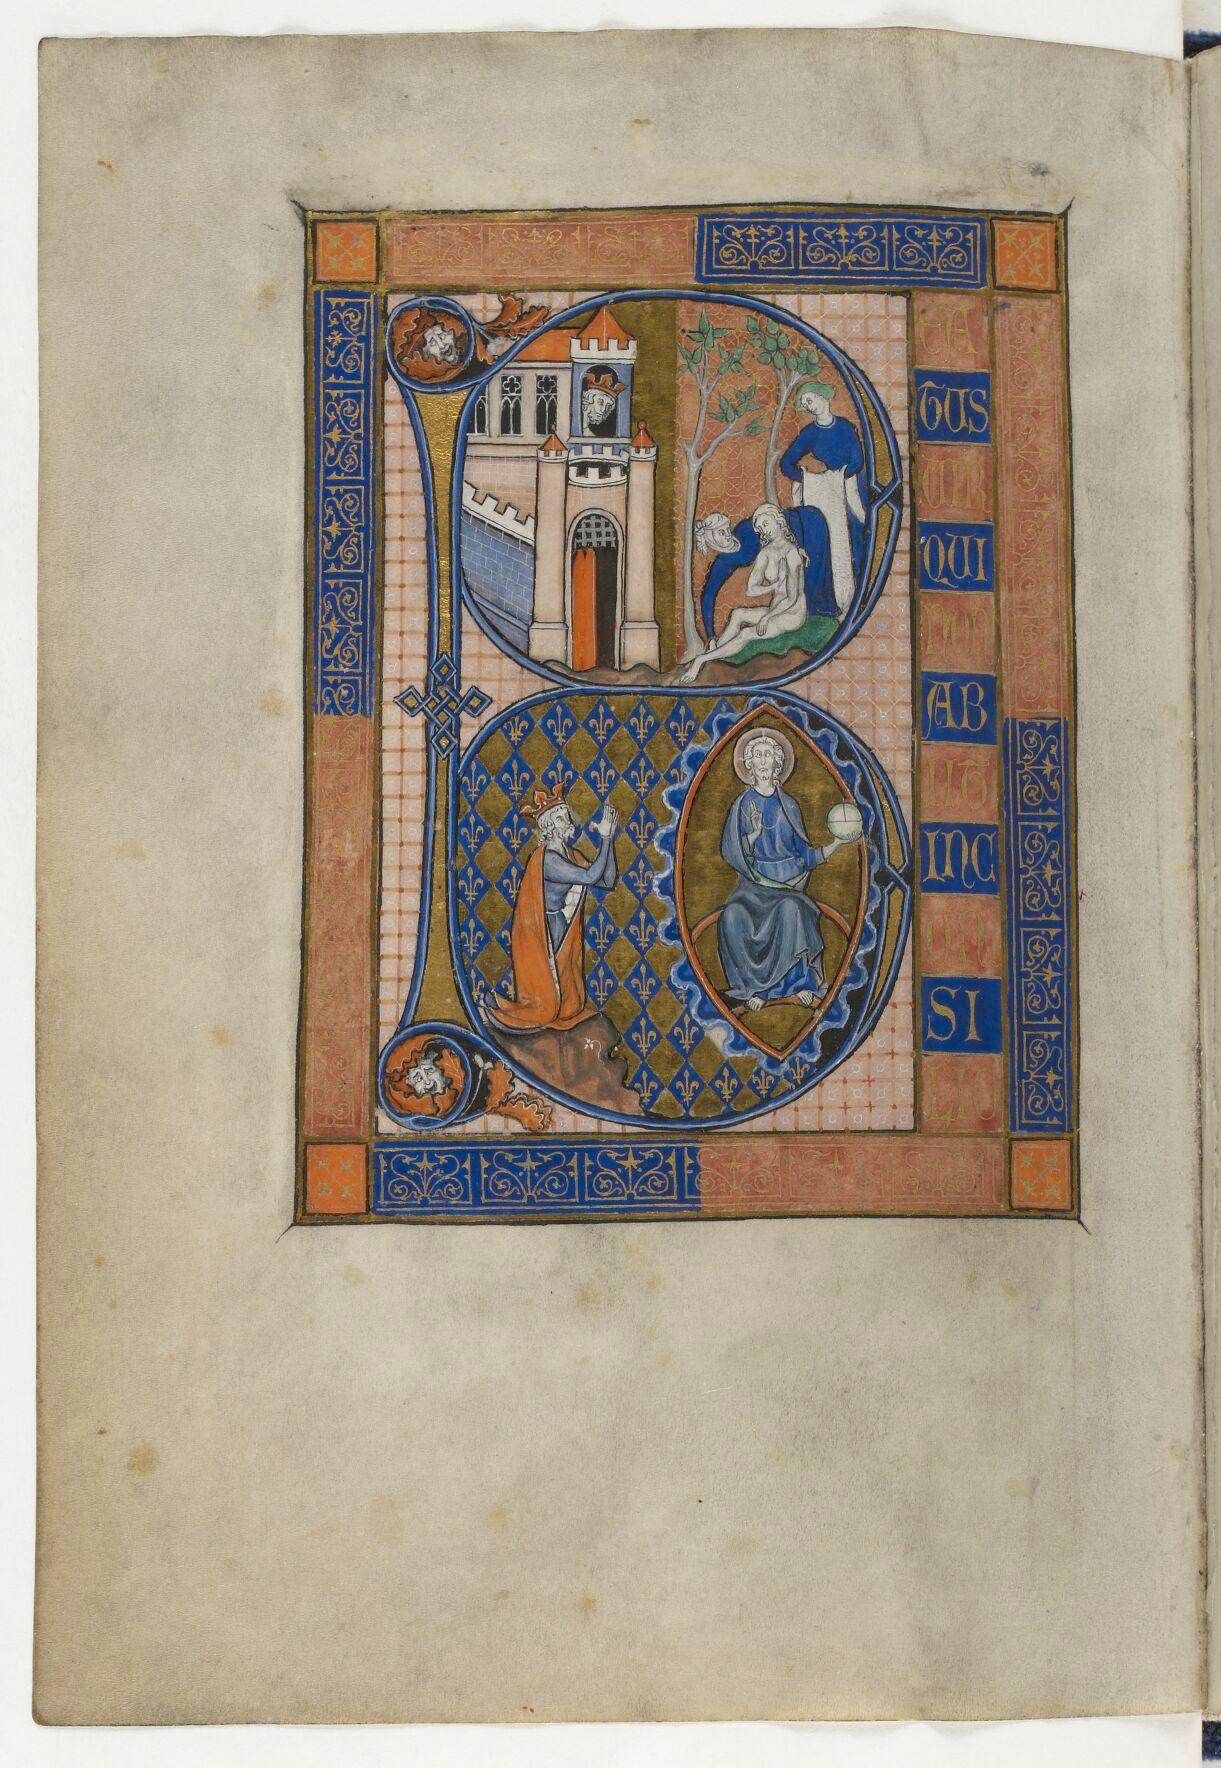 B
EA
TUS
VIR
QUI
NON
AB
IIT
INC
ON
SI
LI